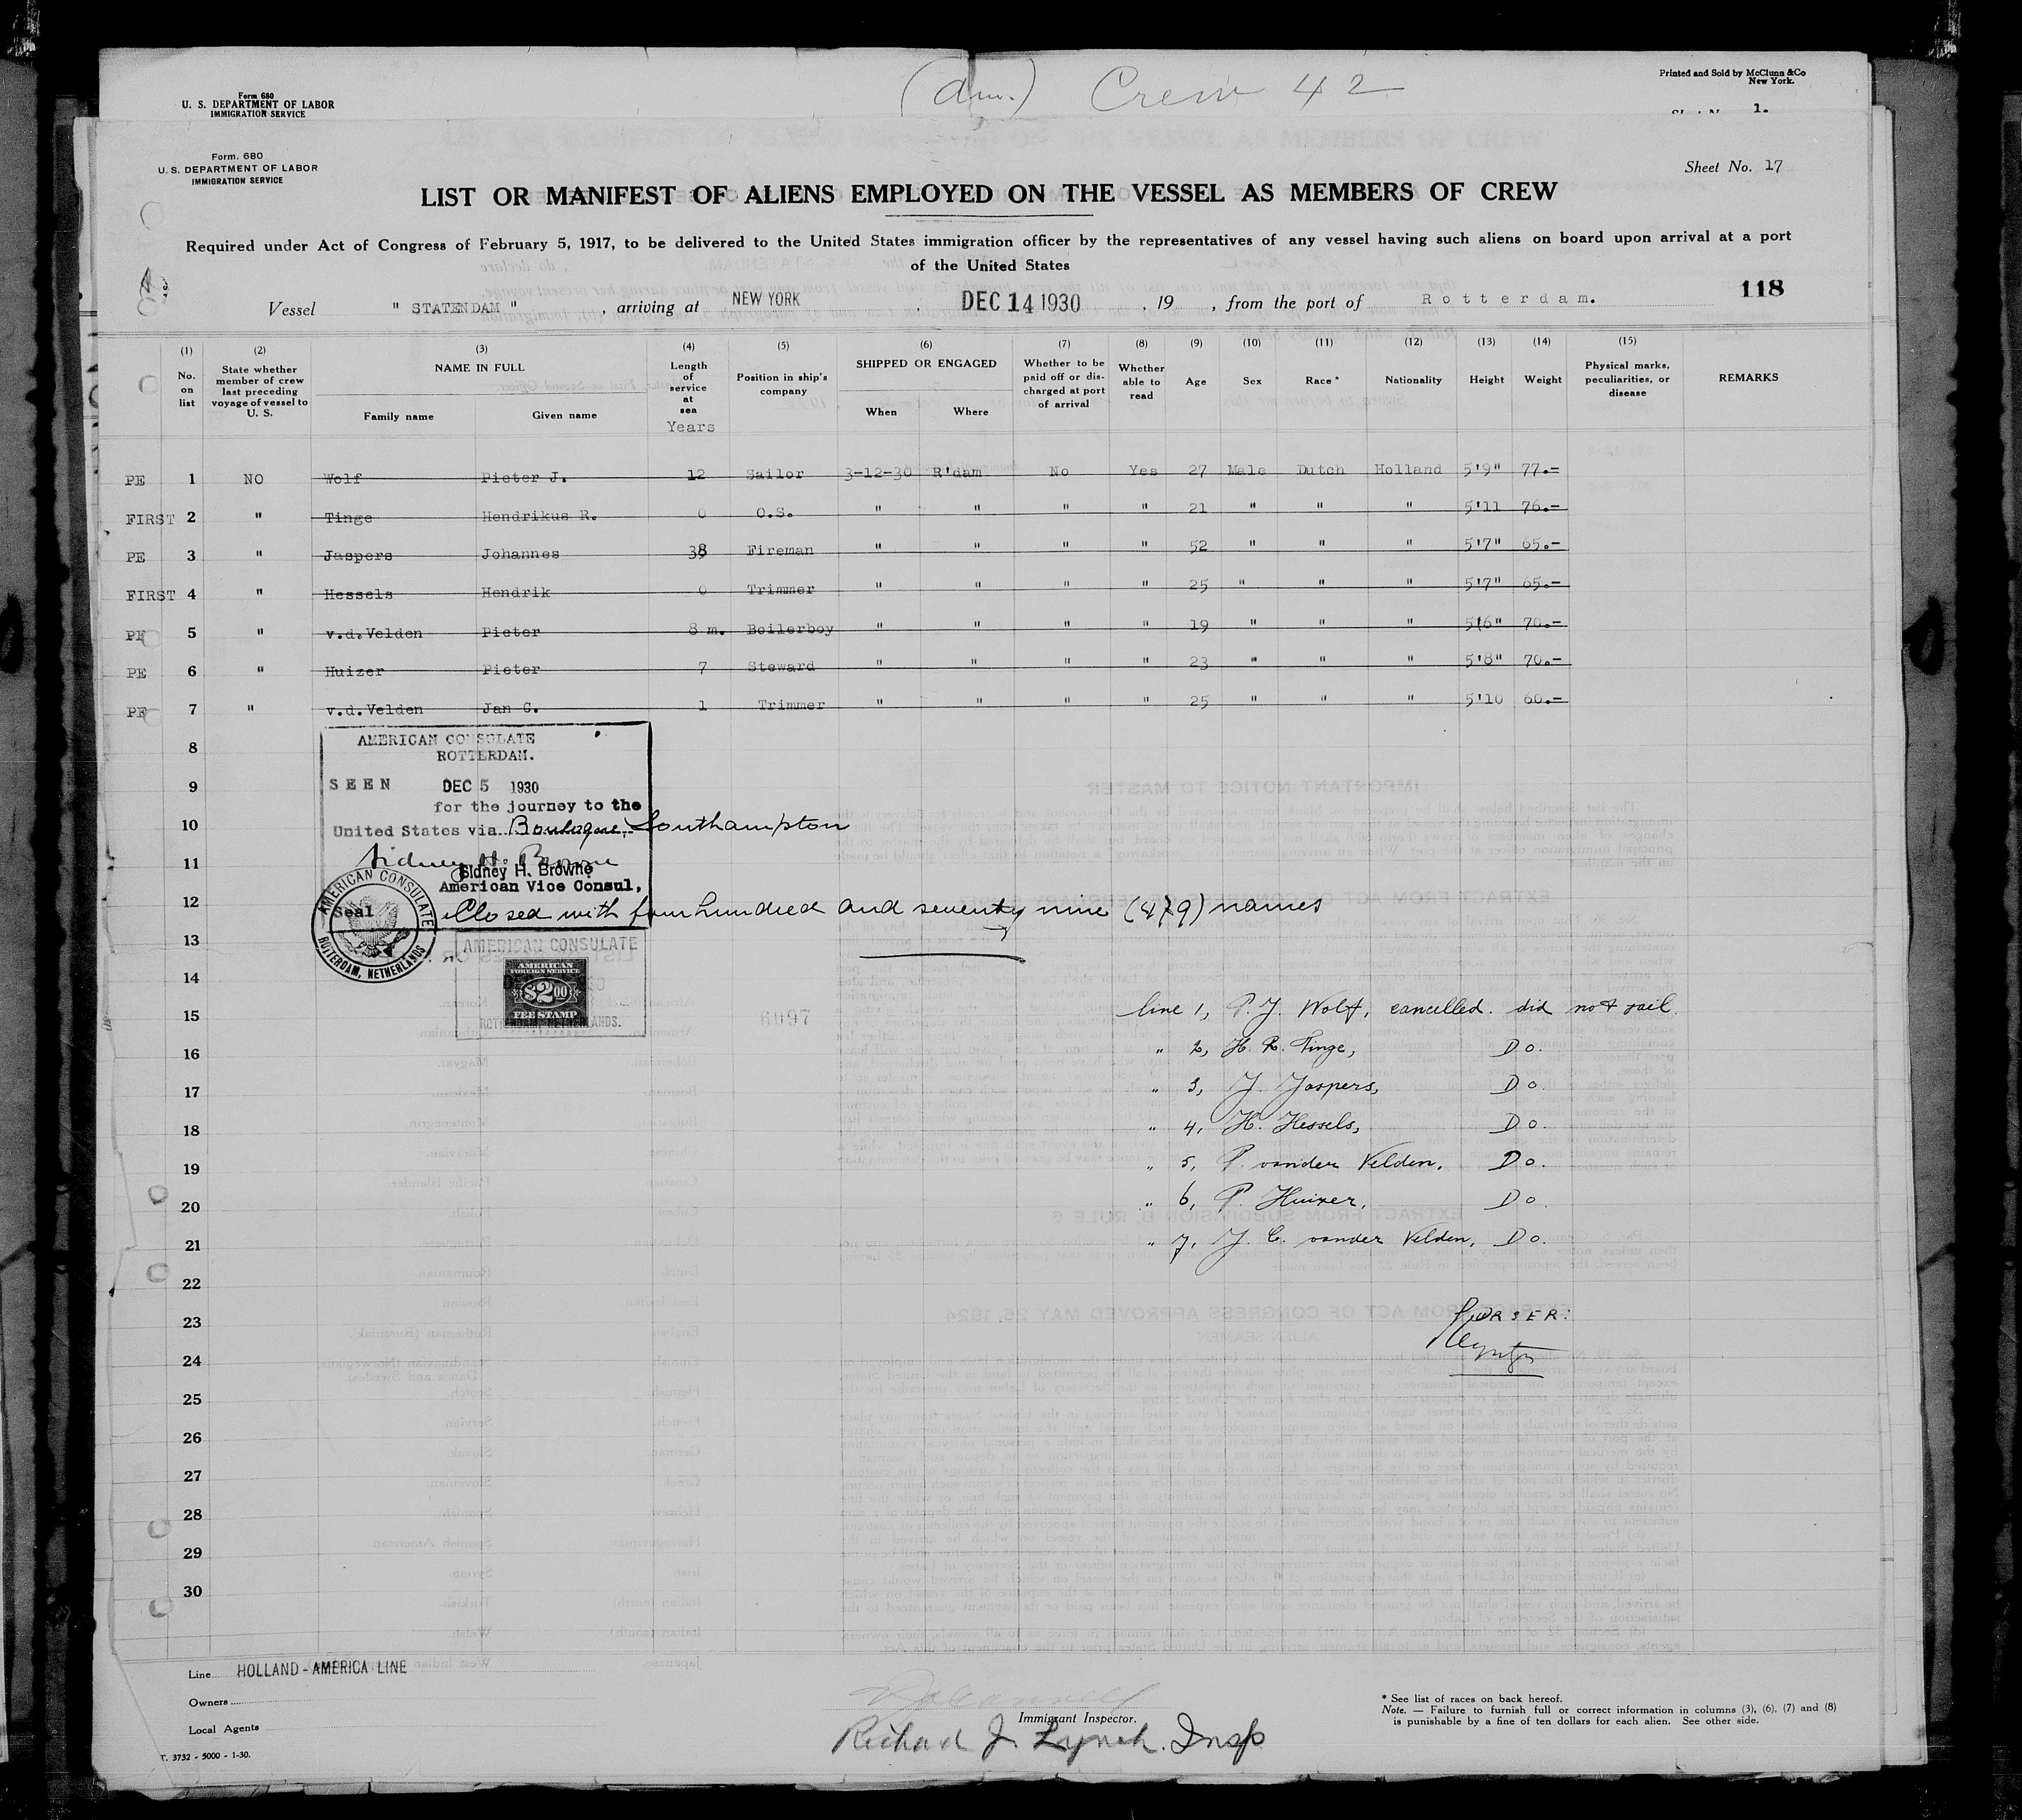 (Am.) Crew 42
Printed and Sold by McClunn & Co
New York.
Form 680
U. S. DEPARTMENT OF LABOR
IMMIGRATION SERVICE
1.
Form. 680
U. S. DEPARTMENT OF LABOR
IMMIGRATION SERVICE
Sheet No. 17
LIST OR MANIFEST OF ALIENS EMPLOYED ON THE VESSEL AS MEMBERS OF CREW
Required under Act of Congress of February 5, 1917, to be delivered to the United States immigration officer by the representatives of any vessel having such aliens on board upon arrival at a port
of the United States
118
Vessel " STATENDAM ", arriving at NEW YORK, DEC 14 1930, 19 , from the port of Rotterdam.
(1) (2) (3) (4) (5) (6) (7) (8) (9) (10) (11) (12) (13) (14) (15)
No. on list
State whether member of crew last preceding voyage of vessel to U. S.
NAME IN FULL
Family name Given name
Length of service at sea
Years
Position in ship's company
SHIPPED OR ENGAGED
When Where
Whether to be paid off or discharged at port of arrival
Whether able to read
Age
Sex
Race *
Nationality
Height
Weight
Physical marks, peculiarities, or disease
REMARKS
PE 1 NO Wolf Pieter J. 12 Sailor 3-12-30 R'dam No Yes 27 Male Dutch Holland 5'9" 77.-
FIRST 2 " Tinge Hendrikus R. 0 O.S. " " " " 21 " " " 5'11 76.-
PE 3 " Jaspers Johannes 38 Fireman " " " " 52 " " " 5'7" 65.-
FIRST 4 " Hessels Hendrik 0 Trimmer " " " " 25 " " " 5'7" 65.-
PE 5 " v.d.Velden Pieter 8 m. Boilerboy " " " " 19 " " " 5'6" 70.-
PE 6 " Huizer Pieter 7 Steward " " " " 23 " " " 5'8" 70.-
PE 7 " v.d.Velden Jan C. 1 Trimmer " " " " 25 " " " 5'10 60.-
8
AMERICAN CONSULATE
ROTTERDAM.
9
SEEN DEC 5 1930
for the journey to the
10
United States via Boulogne, Southampton
11
Sidney H. Browne
Sidney H. Browne
American Vice Consul,
12
Seal
AMERICAN CONSULATE
ROTTERDAM, NETHERLANDS
Closed with four hundred and seventy nine (479) names
13
AMERICAN CONSULATE
14
AMERICAN
FOREIGN SERVICE
$2.00
FEE STAMP
ROTTERDAM, NETHERLANDS.
15 6997 line 1, P. J. Wolf, cancelled. did not sail.
16 " 2, H. R. Tinge, Do.
17 " 3, J. Jaspers, Do.
18 " 4, H. Hessels, Do.
19 " 5, P. vander Velden, Do.
20 " 6, P. Huizer, Do.
21 " 7, J. C. vander Velden, Do.
22
23 PURSER:
24
25
26
27
28
29
30
Line HOLLAND-AMERICA LINE
Owners
Local Agents
T. 3732 - 5000 - 1-30.
Immigrant Inspector.
Richard J. Lynch. Insp
* See list of races on back hereof.
Note. — Failure to furnish full or correct information in columns (3), (6), (7) and (8)
is punishable by a fine of ten dollars for each alien. See other side.